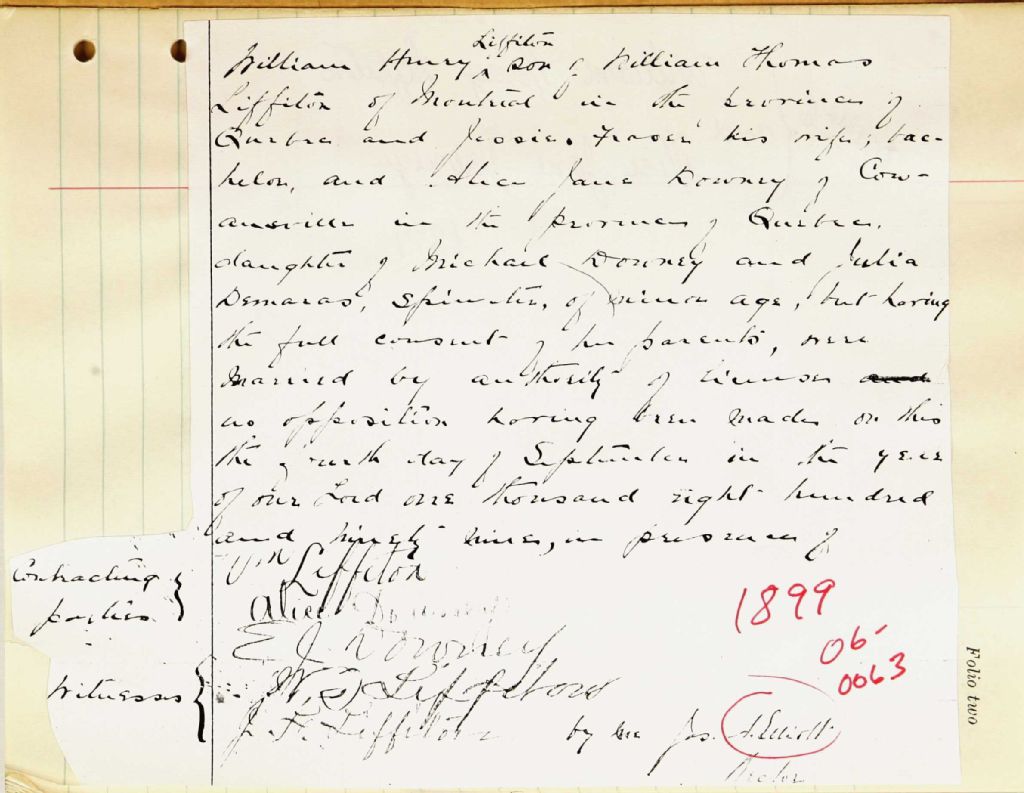 William Henry Liffiton son of William Thomas
Liffiton of Montreal in the province of
Quebec and Jessie Fraser his wife, bac-
helor, and Alice Jane Downey of Cow-
ansville in the province of Quebec,
daughter of Michael Downey and Julia
Demaras, Spinster, of minor age, but having
the full consent of her parents, were
married by authority of license and
no opposition having been made on this
the fourth day of September in the year
of our Lord one thousand eight hundred
and ninety nine, in presence of
Contracting parties
Wm Liffiton
Alice Downey
Witnesses
E J Downey
W. T. Liffiton
J. F. Liffiton
by me Jos. A. Elliott
Rector
1899
06-
0063
Folio two